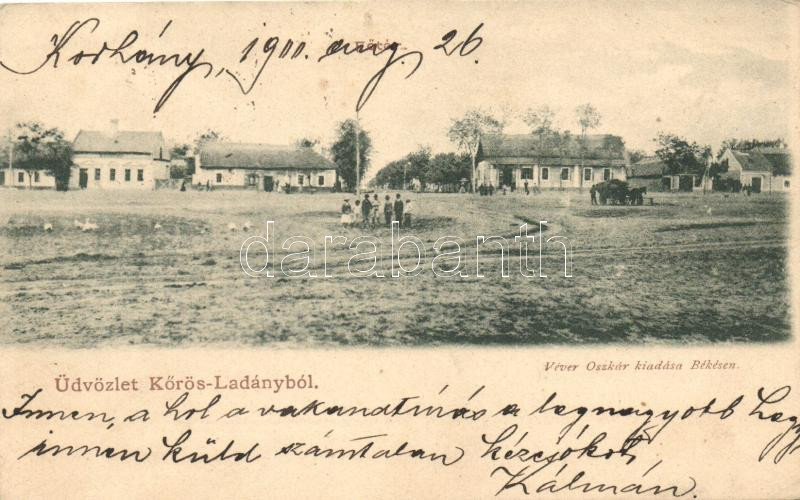 Korhány, 1900. aug 26.
Főtér.
darabanth
Üdvözlet Kőrös-Ladányból.
Véver Oszkár kiadása Békésen.
Innen, a hol a a legnagyobb
innen küld számtalan kézcsókot
Kálmán.